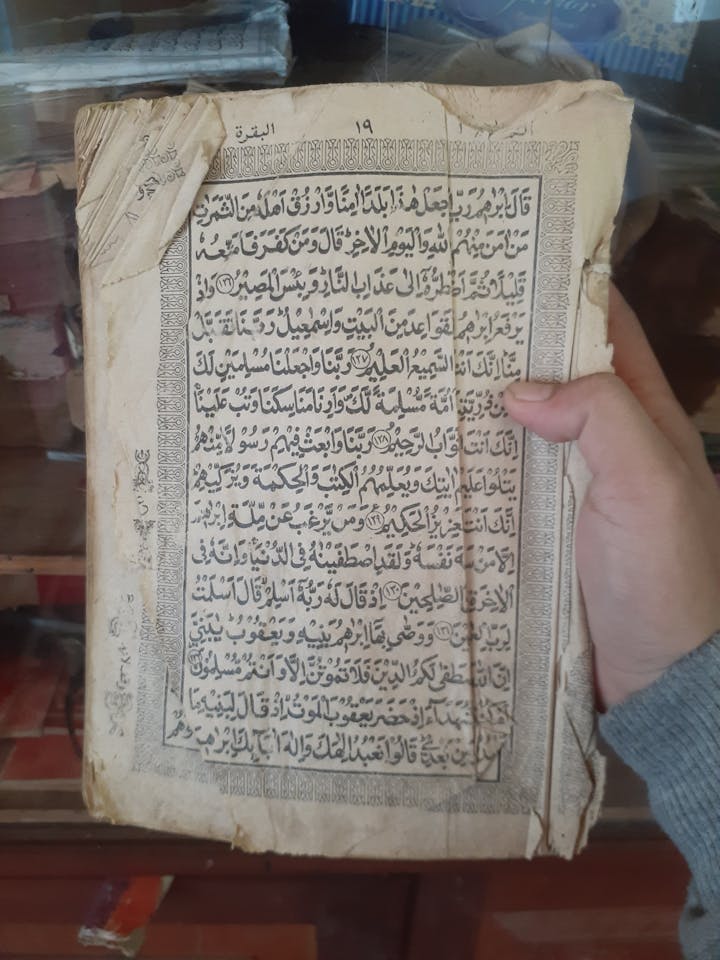 البقرة ١٩ ا
قَالَ اِبْرٰهٖمُ رَبِّ اجْعَلْ هٰذَا بَلَدًا اٰمِنًا وَّارْزُقْ اَهْلَهٗ مِنَ الثَّمَرٰتِ
مَنْ اٰمَنَ مِنْهُمْ بِاللّٰهِ وَالْيَوْمِ الْاٰخِرِ قَالَ وَمَنْ كَفَرَ فَاُمَتِّعُهٗ
قَلِيْلًا ثُمَّ اَضْطَرُّهٗٓ اِلٰى عَذَابِ النَّارِ وَبِئْسَ الْمَصِيْرُ ۝١٢٦ وَاِذْ
يَرْفَعُ اِبْرٰهٖمُ الْقَوَاعِدَ مِنَ الْبَيْتِ وَاِسْمٰعِيْلُ رَبَّنَا تَقَبَّلْ
مِنَّا اِنَّكَ اَنْتَ السَّمِيْعُ الْعَلِيْمُ ۝١٢٧ رَبَّنَا وَاجْعَلْنَا مُسْلِمَيْنِ لَكَ
وَمِنْ ذُرِّيَّتِنَآ اُمَّةً مُّسْلِمَةً لَّكَ وَاَرِنَا مَنَاسِكَنَا وَتُبْ عَلَيْنَا
اِنَّكَ اَنْتَ التَّوَّابُ الرَّحِيْمُ ۝١٢٨ رَبَّنَا وَابْعَثْ فِيْهِمْ رَسُوْلًا مِّنْهُمْ
يَتْلُوْا عَلَيْهِمْ اٰيٰتِكَ وَيُعَلِّمُهُمُ الْكِتٰبَ وَالْحِكْمَةَ وَيُزَكِّيْهِمْ
اِنَّكَ اَنْتَ الْعَزِيْزُ الْحَكِيْمُ ۝١٢٩ وَمَنْ يَّرْغَبُ عَنْ مِّلَّةِ اِبْرٰهٖمَ
اِلَّا مَنْ سَفِهَ نَفْسَهٗ وَلَقَدِ اصْطَفَيْنٰهُ فِى الدُّنْيَا وَاِنَّهٗ فِى
الْاٰخِرَةِ لَمِنَ الصّٰلِحِيْنَ ۝١٣٠ اِذْ قَالَ لَهٗ رَبُّهٗٓ اَسْلِمْ قَالَ اَسْلَمْتُ
لِرَبِّ الْعٰلَمِيْنَ ۝١٣١ وَوَصّٰى بِهَآ اِبْرٰهٖمُ بَنِيْهِ وَيَعْقُوْبُ يٰبَنِيَّ
اِنَّ اللّٰهَ اصْطَفٰى لَكُمُ الدِّيْنَ فَلَا تَمُوْتُنَّ اِلَّا وَاَنْتُمْ مُّسْلِمُوْنَ ۝١٣٢
اَمْ كُنْتُمْ شُهَدَآءَ اِذْ حَضَرَ يَعْقُوْبَ الْمَوْتُ اِذْ قَالَ لِبَنِيْهِ مَا
تَعْبُدُوْنَ مِنْ بَعْدِيْ قَالُوْا نَعْبُدُ اِلٰهَكَ وَاِلٰهَ اٰبَآئِكَ اِبْرٰهٖمَ